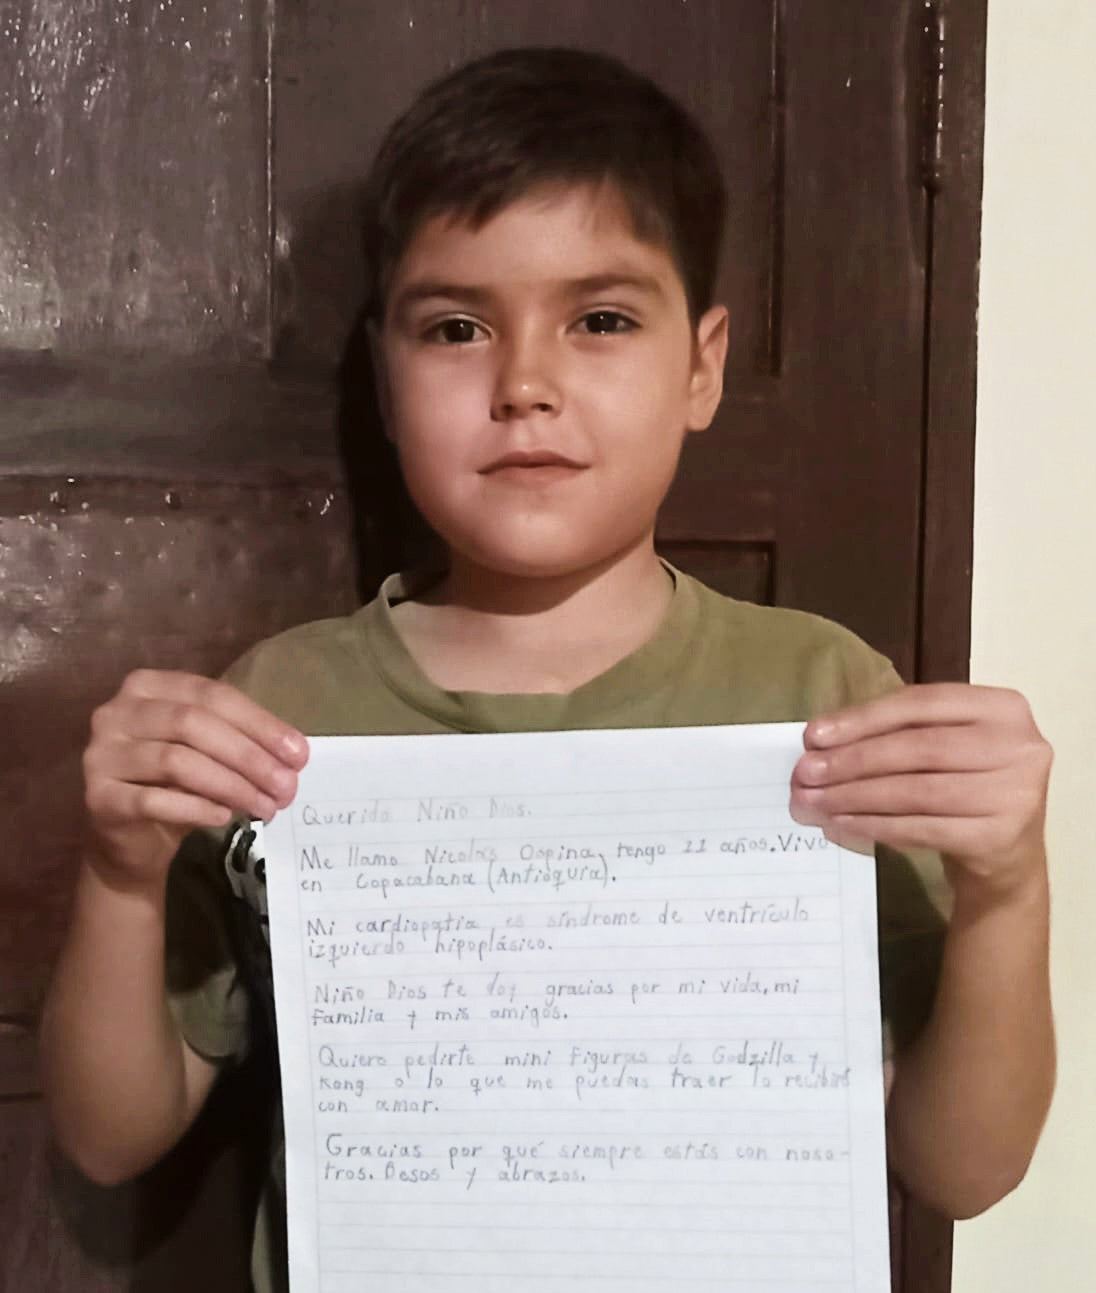 Querido Niño Dios.
Me llamo Nicolás Ospina, tengo 11 años. Vivo
en Copacabana (Antioquia).
Mi cardiopatia es sindrome de ventrículo
izquierdo hipoplásico.
Niño Dios te doy gracias por mi vida, mi
familia y mis amigos.
Quiero pedirte mini figuras de Godzilla y
Kong o lo que me puedas traer lo recibiré
con amor.
Gracias por qué siempre estás con noso-
tros. Besos y abrazos.